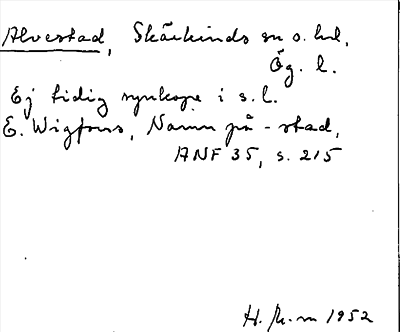 Alvestad, Skärkinds sn o. hd,
Ög. l.
Ej tidig synkope i s. l.
E. Wigforss, Namn på -stad,
ANF 35, s. 215
1952